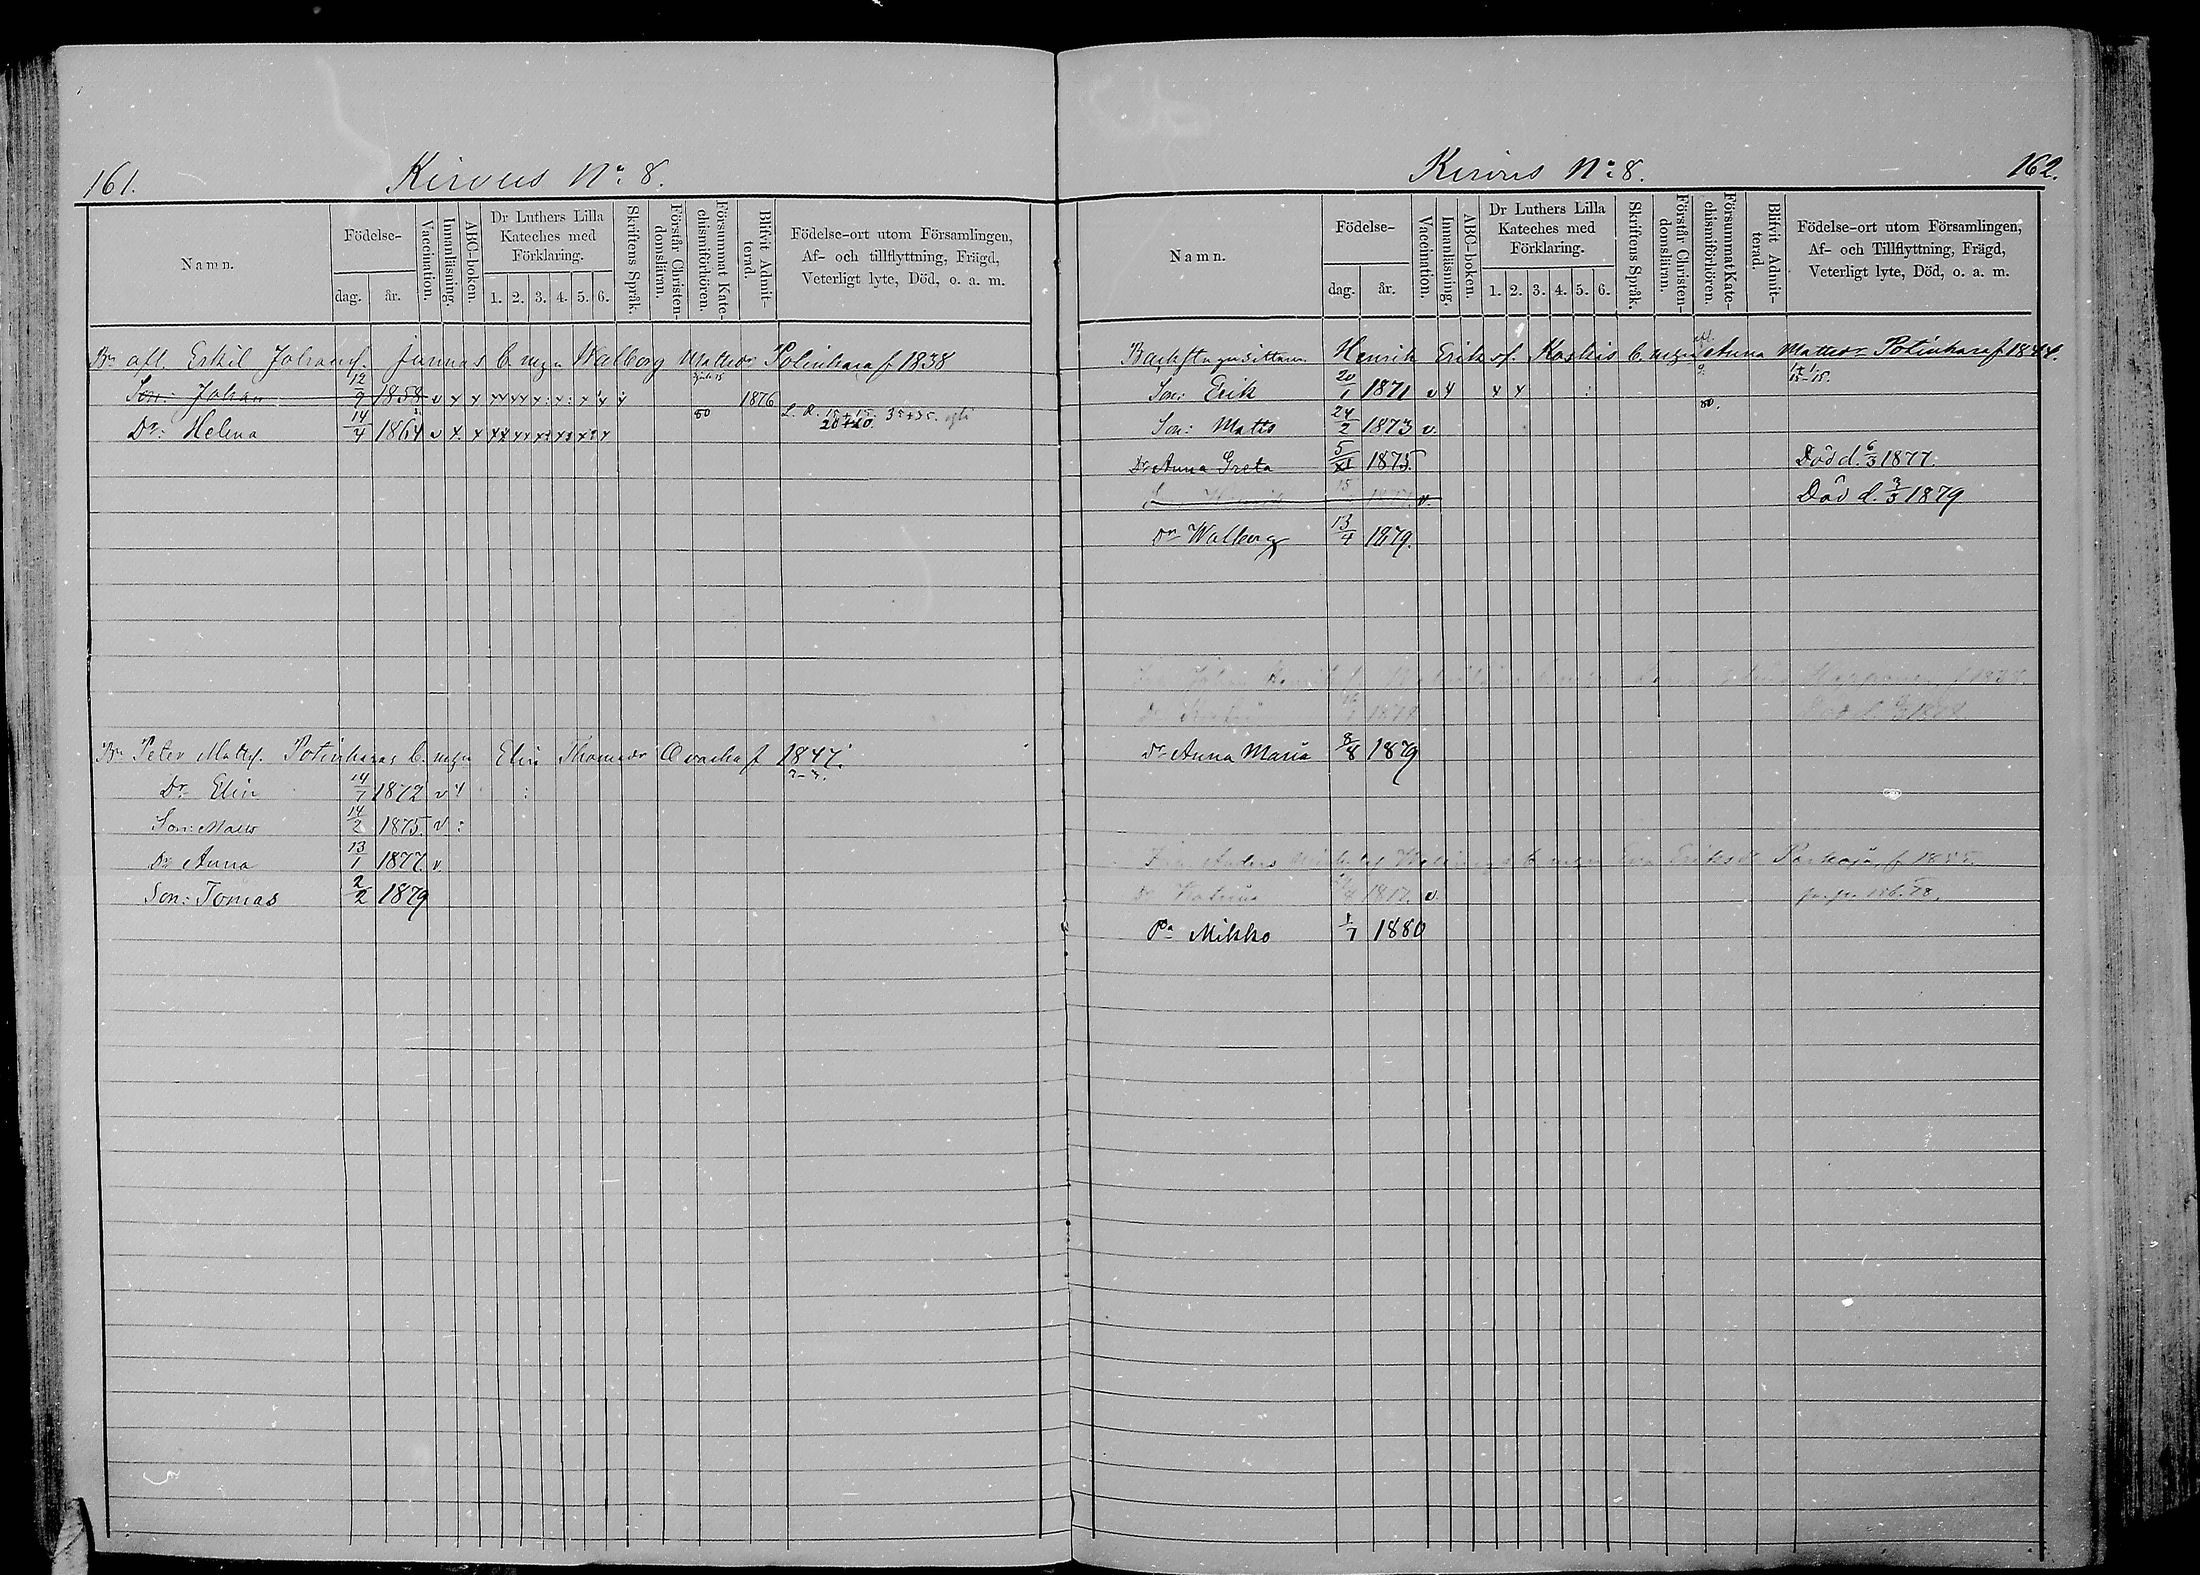 161.
Kirvus No: 8.
Namn.
Födelse-
dag.
år.
Vaccination.
Innanläsning.
ABC-boken.
Dr Luthers Lilla
Kateches med
Förklaring.
1. 2. 3. 4. 5. 6.
Skriftens Språk.
Förstår Christen-
domsläran.
Försummat Kate-
chismiförhören.
Blifvit Admit-
terad.
Födelse-ort utom Församlingen,
Af- och tillflyttning, Frägd,
Veterligt lyte, Död, o. a. m.
Bn afl. Eskil Johansf. Junnas b. m. Walborg Mattsdr Potinkara f 1838
Son: Johan 12/9 1858 v x x 1876
Dr: Helena 14/4 1864 v x x 50 20+20. 35+35.
Bn Peter Mattsf. Potinkaras b. m. Elin Thomasdr Ovaska f 1847.
Dr Elin 14/7 1872 v 4
Son: Matts 14/2 1875. v :
Dr Anna 13/1 1877. v.
Son: Tomas 2/2 1879
Kirvus No: 8.
162.
Namn.
Födelse-
dag.
år.
Vaccination.
Innanläsning.
ABC-boken.
Dr Luthers Lilla
Kateches med
Förklaring.
1. 2. 3. 4. 5. 6.
Skriftens Språk.
Förstår Christen-
domsläran.
Försummat Kate-
chismiförhören.
Blifvit Admit-
terad.
Födelse-ort utom Församlingen,
Af- och Tillflyttning, Frägd,
Veterligt lyte, Död, o. a. m.
Henrik Eriksf. Koskis b. m. afl. Anna Mattsdr Potinkara f 1844.
Son: Erik 20/1 1871 v 4 4 4 50.
Son: Matts 24/2 1873 v.
Dr Anna Greta 5/XI 1875. Död d. 6/3 1877.
15 v. Död d. 3/3 1879
Dr Walborg 13/4 1879.
Dr Anna Maria 8/8 1879
Anders b. m. Eva Eriksdr f 1855.
Dr v.
Pa Mikko 1/7 1880